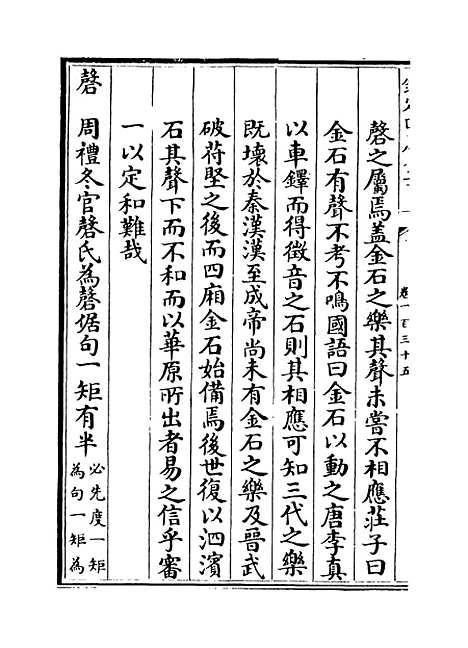 卷一百三十五
磬之屬焉蓋金石之樂其聲未嘗不相應莊子曰
金石有聲不考不鳴國語曰金石以動之唐李真
以車鐸而得徵音之石則其相應可知三代之樂
既壞於秦漢漢至成帝尚未有金石之樂及晉武
破苻堅之後而四廂金石始備焉後世復以泗濱
石其聲下而不和而以華原所出者易之信乎審
一以定和難哉
磬　周禮冬官磬氏為磬倨句一矩有半
必先度一矩
為句一矩為